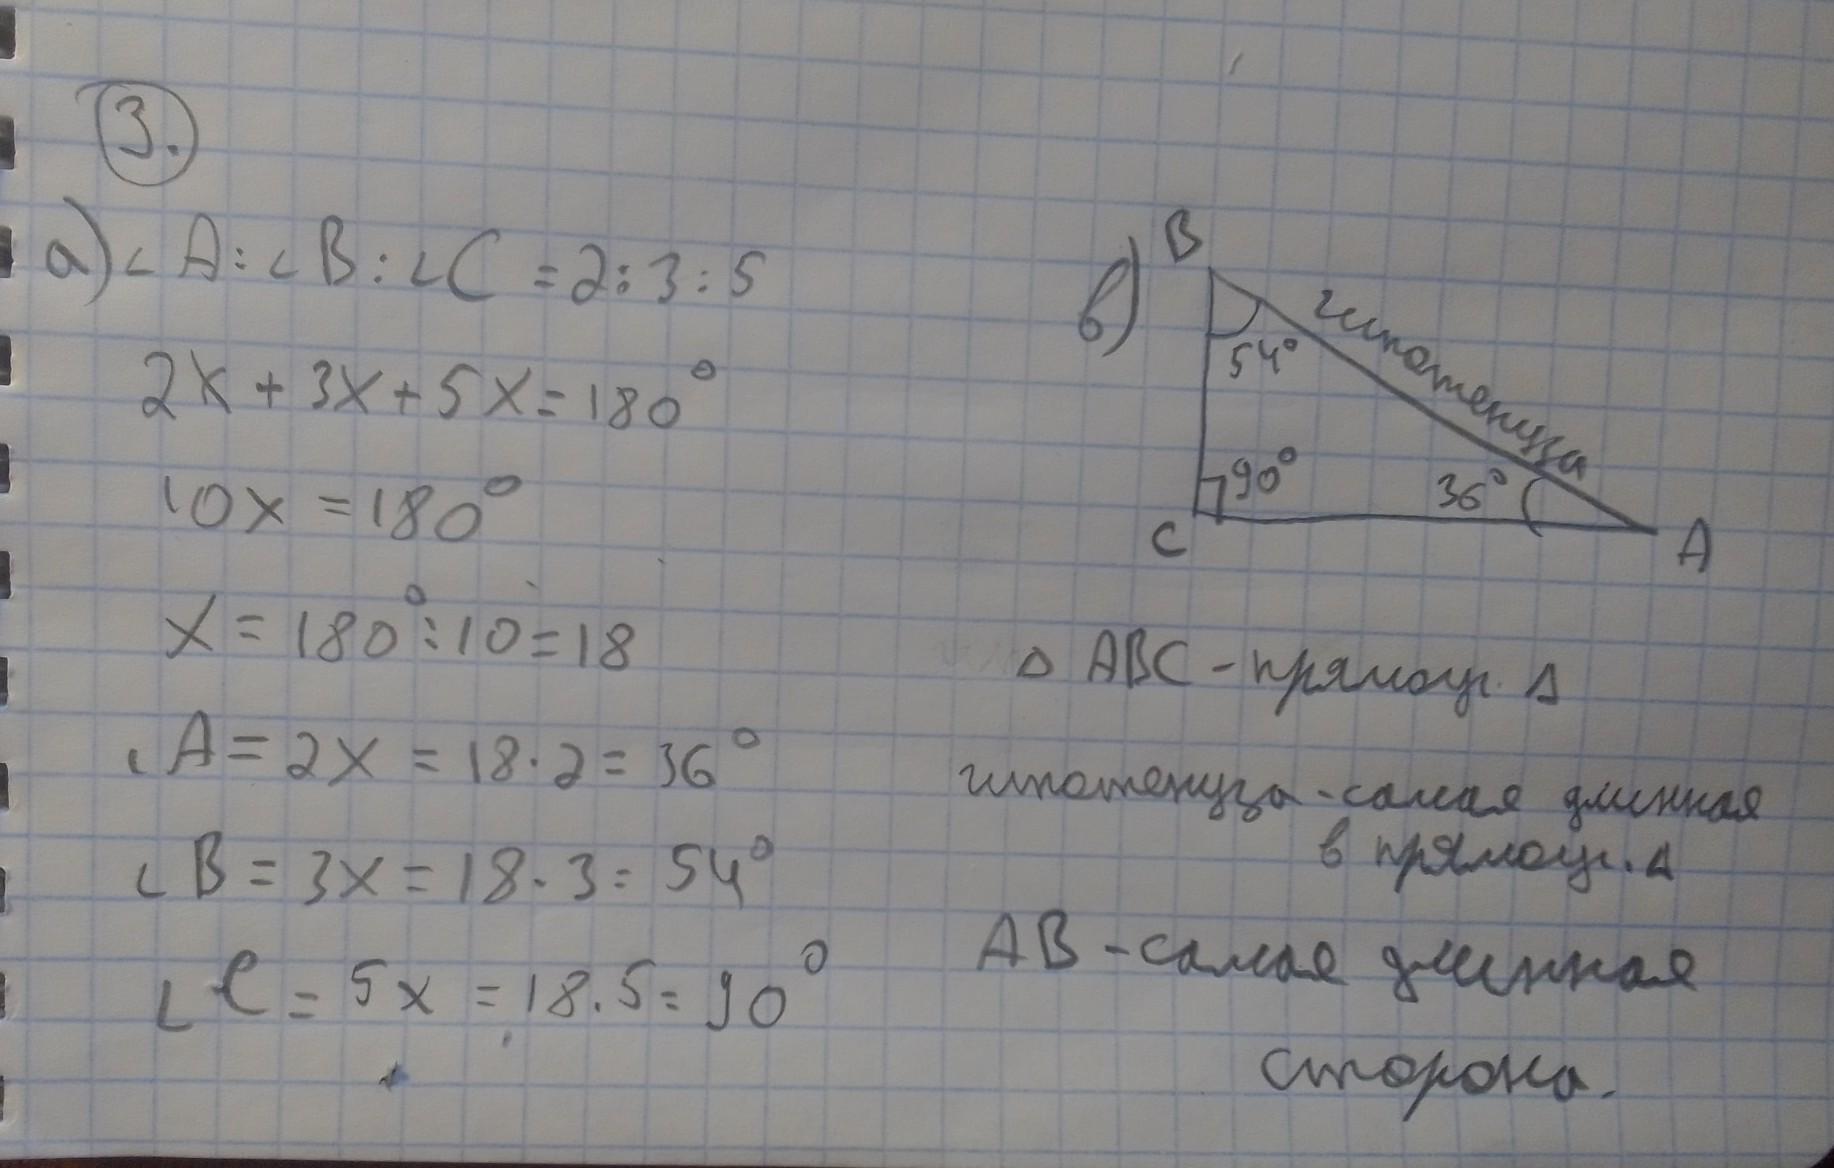 3.
а) ∠A : ∠B : ∠C = 2 : 3 : 5
2x + 3x + 5x = 180°
10x = 180°
x = 180° : 10 = 18
∠A = 2x = 18 · 2 = 36°
∠B = 3x = 18 · 3 = 54°
∠C = 5x = 18 · 5 = 90°
в)
B
гипотенуза
54°
90°
36°
C
A
Δ ABC - прямоуг. Δ
гипотенуза - самая длинная
в прямоуг. Δ
AB - самая длинная
сторона.